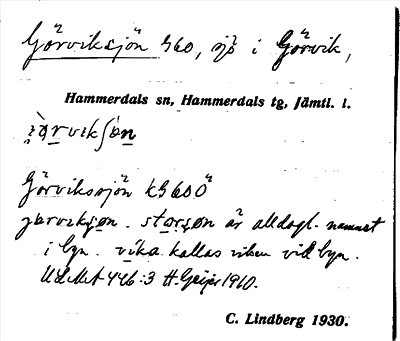 Görviksjön 3GO, sjö i Görvik,
Hammerdals sn, Hammerdals tg, Jämtl. l.
Görvikssjön kG60Ö
jørvikʂøn . størʂøn är alldagl. namnet
i byn. vika kallas viken vid byn.
ULMA 446:3 H. Geijer 1910.
C. Lindberg 1930.